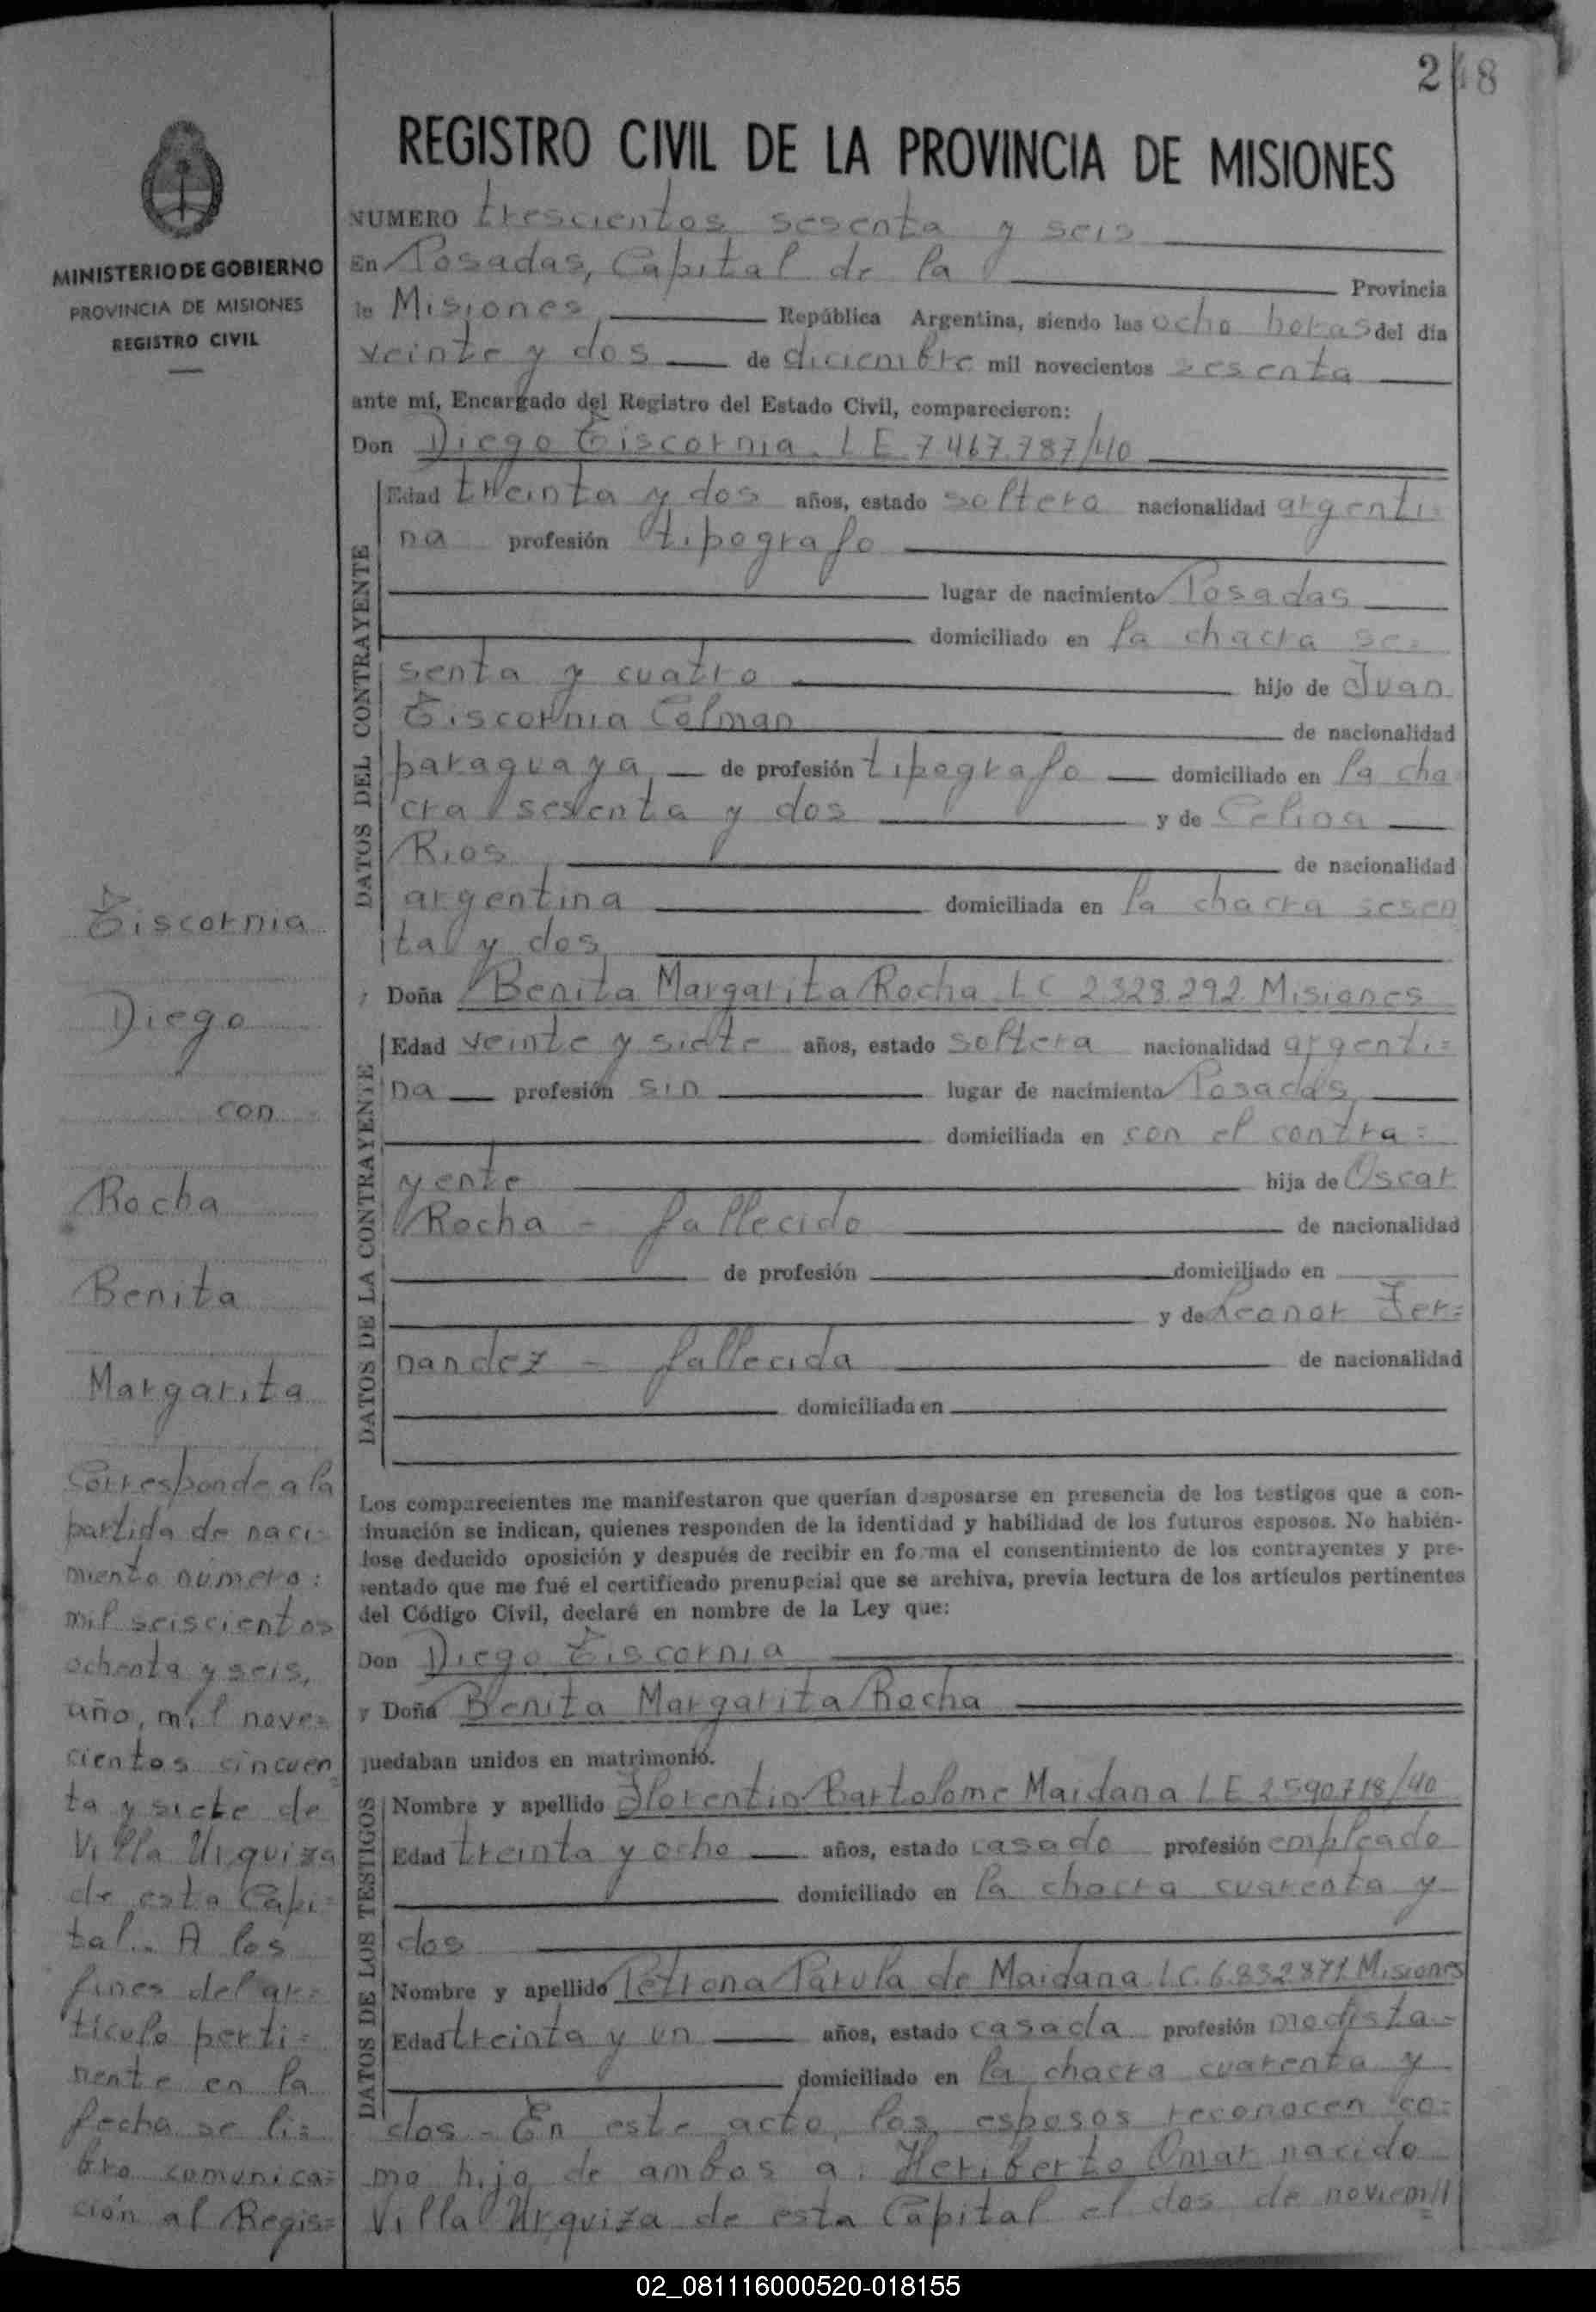 248
REGISTRO CIVIL DE LA PROVINCIA DE MISIONES
MINISTERIO DE GOBIERNO
PROVINCIA DE MISIONES
REGISTRO CIVIL
NUMERO trescientos sesenta y seis
En Posadas, Capital de la Provincia
de Misiones, República Argentina, siendo las ocho horas del día
veinte y dos de diciembre mil novecientos sesenta
ante mí, Encargado del Registro del Estado Civil, comparecieron:
Don Diego Tiscornia. L E 7.467.787/40
DATOS DEL CONTRAYENTE
Edad treinta y dos años, estado soltero nacionalidad argenti=
na profesión tipografo
lugar de nacimiento Posadas
domiciliado en la chacra se=
senta y cuatro hijo de Juan
Tiscornia Colman de nacionalidad
paraguaya, de profesión tipografo domiciliado en la cha
cra sesenta y dos y de Celina
Rios de nacionalidad
argentina domiciliada en la chacra sesen
ta y dos
y Doña Benita Margarita Rocha L C 2.328.292 Misiones
DATOS DE LA CONTRAYENTE
Edad veinte y siete años, estado soltera nacionalidad argenti=
na profesión sin lugar de nacimiento Posadas,
domiciliada en con el contra=
yente hija de Oscar
Rocha - fallecido de nacionalidad
de profesión domiciliado en
y de Leonor Fer=
nandez - fallecida de nacionalidad
domiciliada en
Los comparecientes me manifestaron que querían desposarse en presencia de los testigos que a con-
tinuación se indican, quienes responden de la identidad y habilidad de los futuros esposos. No habién-
dose deducido oposición y después de recibir en forma el consentimiento de los contrayentes y pre-
sentado que me fué el certificado prenupcial que se archiva, previa lectura de los artículos pertinentes
del Código Civil, declaré en nombre de la Ley que:
Don Diego Tiscornia
y Doña Benita Margarita Rocha
quedaban unidos en matrimonio.
DATOS DE LOS TESTIGOS
Nombre y apellido Florentin Bartolome Maidana L E 2.590.718/40
Edad treinta y ocho años, estado casado profesión empleado
domiciliado en la chacra cuarenta y
dos
Nombre y apellido Petrona Parula de Maidana. L.C. 6.832.871 Misiones
Edad treinta y un años, estado casada profesión modista=
domiciliado en la chacra cuarenta y
dos - En este acto, los esposos reconocen co=
mo hijo de ambos a: Heriberto Omar nacido
Villa Urquiza de esta Capital el dos de noviem
Tiscornia
Diego
con
Rocha
Benita
Margarita
Corresponde a la
partida de naci=
miento número:
mil seiscientos
ochenta y seis,
año, mil nove=
cientos cincuen
ta y siete de
Villa Urquiza
de esta Capi=
tal.. A los
fines del ar=
ticulo perti=
nente en la
fecha se li=
bro comunica=
ción al Regis=
02_081116000520-018155